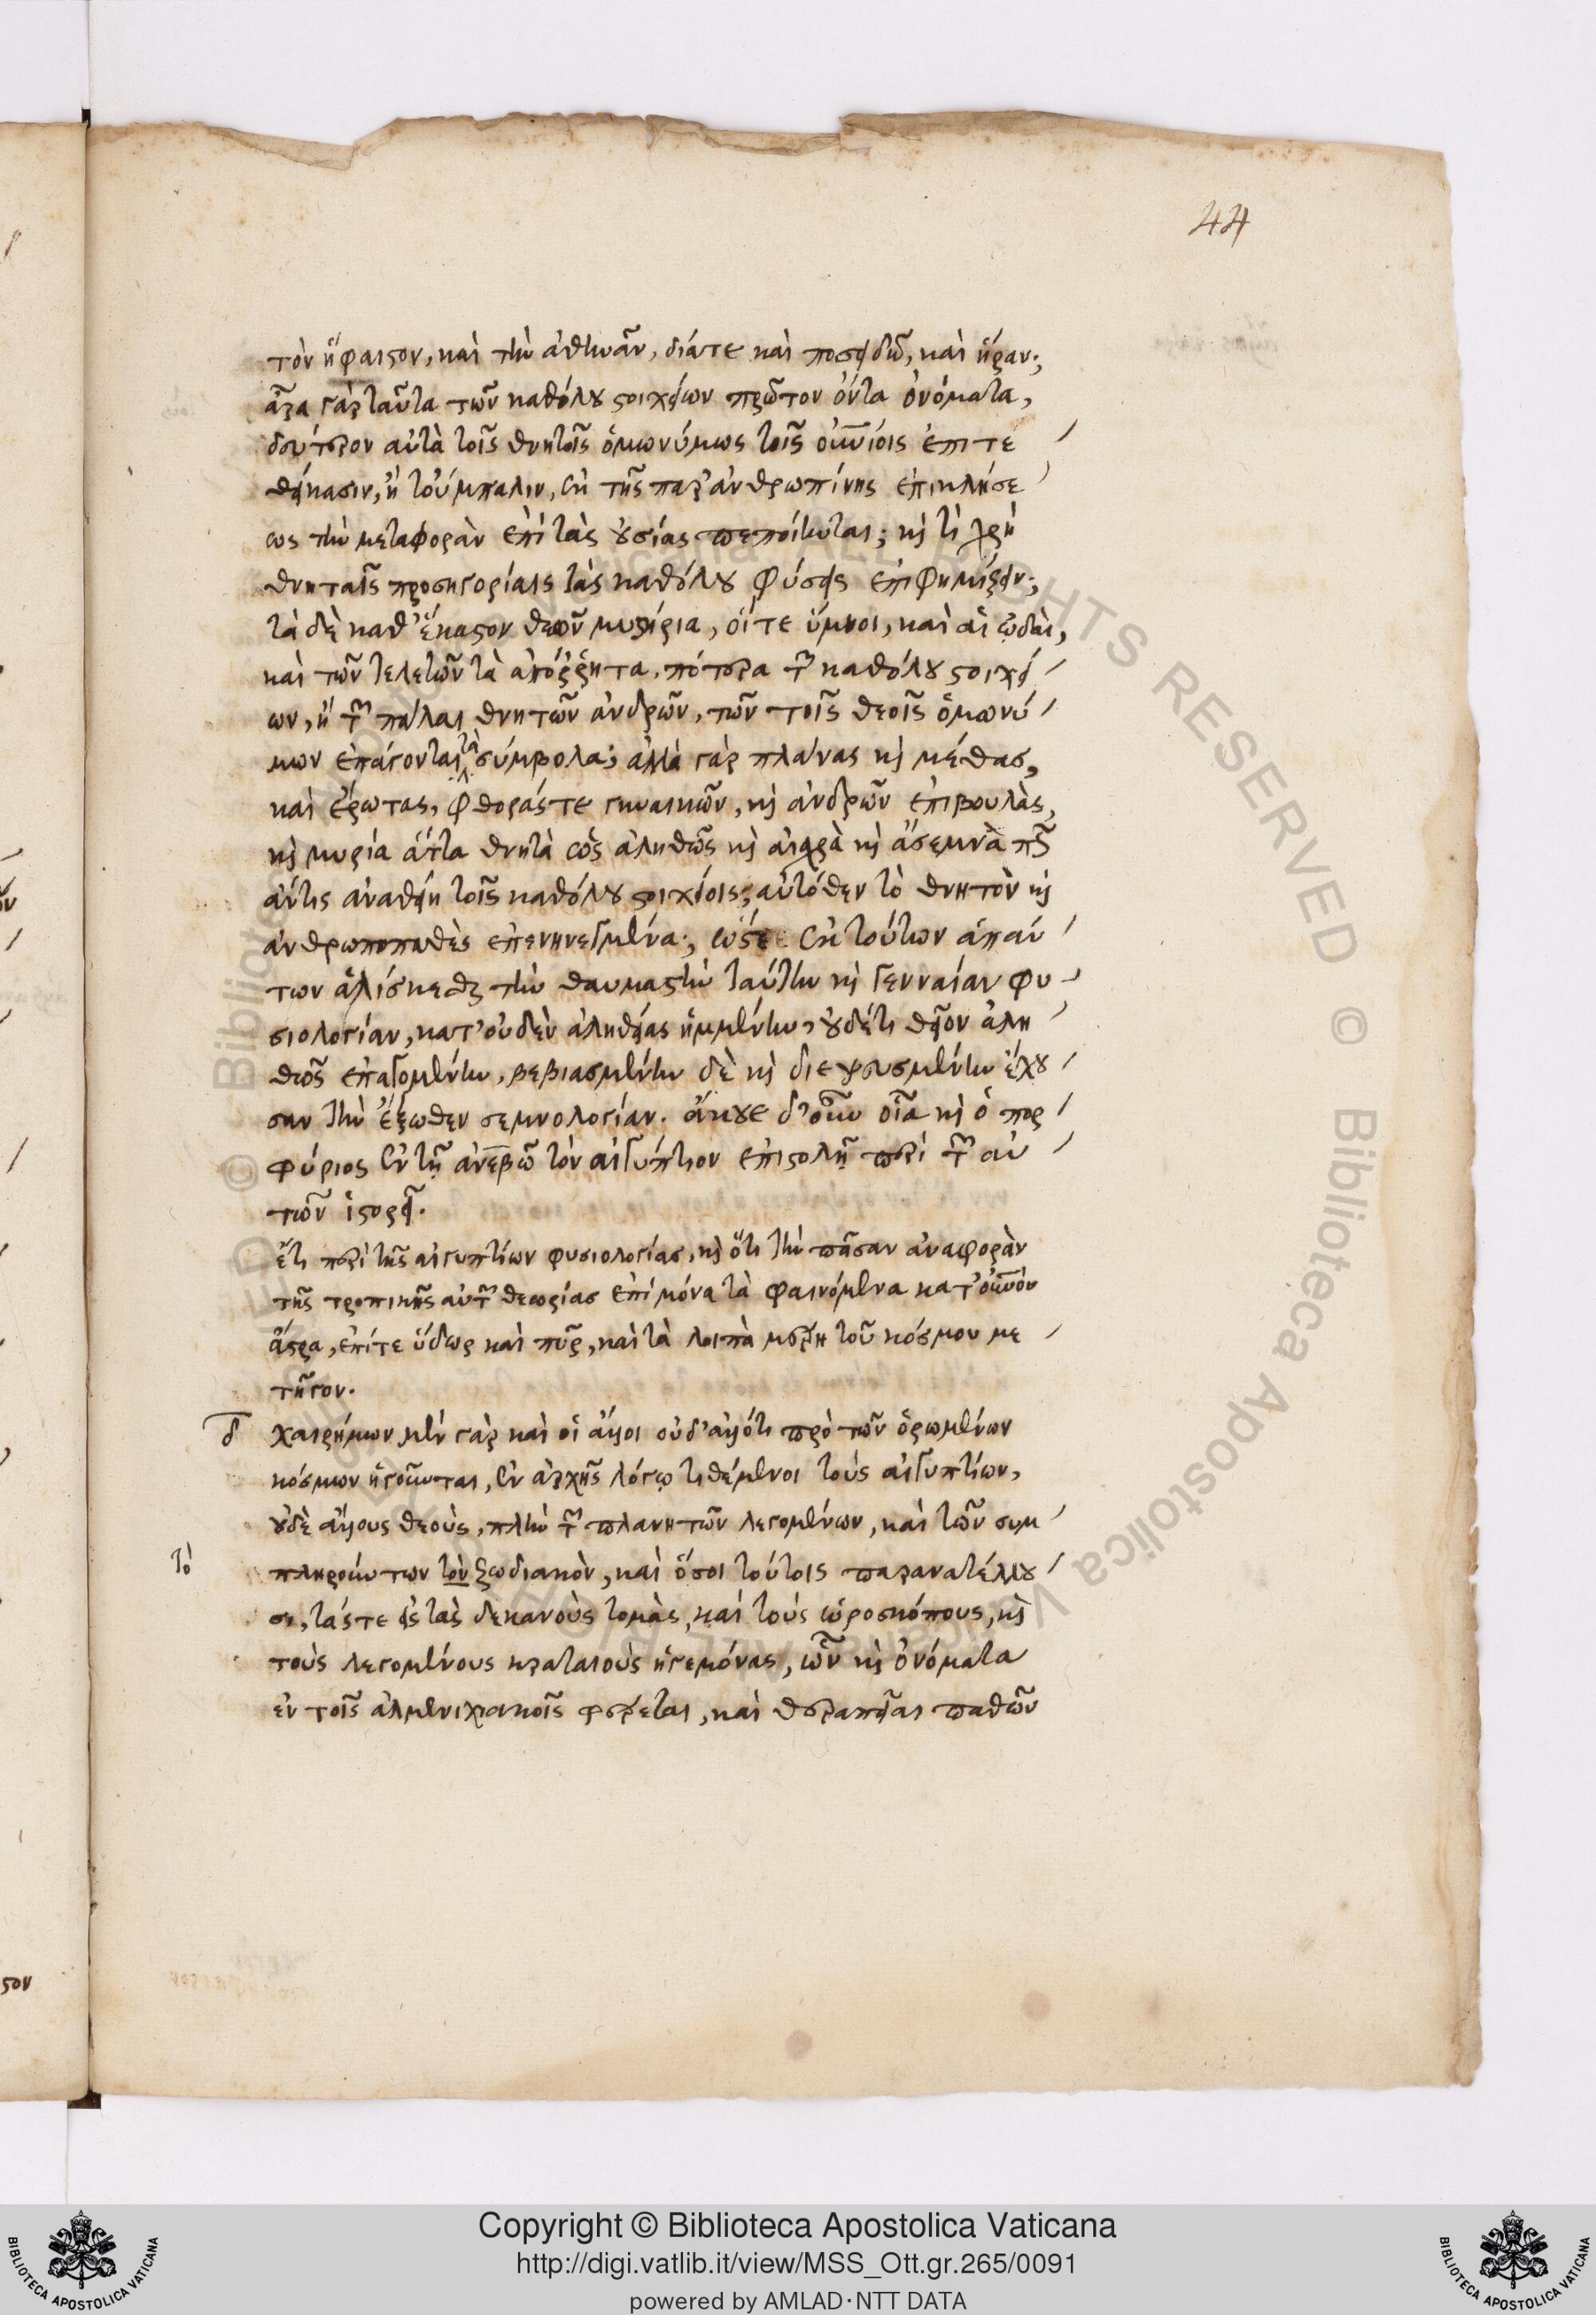 44
τὸν ἥφαιστον, καὶ τὴν ἀθηνᾶν, δία τε καὶ ποσειδῶ, καὶ ἥραν;
ἆρα γὰρ ταῦτα τῶν καθόλου στοιχείων πρῶτον ὄντα ὀνόματα,
δεύτερον αὐτὰ τοῖς θνητοῖς ὁμωνύμως τοῖς οὐρανίοις ἐπιτε
θείκασιν, ἢ τοὔμπαλιν, ἐκ τῆς παρ' ἀνθρωπίνης ἐπικλήσε
ως τὴν μεταφορὰν ἐπὶ τὰς οὐσίας πεποίηνται; καὶ τί χρὴ
θνηταῖς προσηγορίαις τὰς καθόλου φύσεις ἐπιφημίζειν;
τὰ δὲ καθ' ἕκαστον θεὸν μυστήρια, οἵ τε ὕμνοι, καὶ αἱ ᾠδαὶ,
καὶ τῶν τελετῶν τὰ ἀπόρρητα, πότερα τῶν καθόλου στοιχεί
ων, ἢ τῶν πάλαι θνητῶν ἀνδρῶν, τῶν τοῖς θεοῖς ὁμωνύ
μων ἐπάγονται τὰ σύμβολα; ἀλλὰ γὰρ πλάνας καὶ μέθας,
καὶ ἔρωτας, φθοράς τε γυναικῶν, καὶ ἀνδρῶν ἐπιβουλὰς,
καὶ μυρία ἄττα θνητὰ ὡς ἀληθῶς καὶ αἰσχρὰ καὶ ἄσεμνα πῶς
ἄν τις ἀναθείη τοῖς καθόλου στοιχείοις; αὐτόθεν τὸ θνητὸν καὶ
ἀνθρωποπαθὲς ἐπενηνεγμένα; ὥστε ἐκ τούτων ἁπάν
των ἁλίσκεσθαι τὴν θαυμαστὴν ταύτην καὶ γενναίαν φυ
σιολογίαν, κατ' οὐδὲν ἀληθείας ἡμμένην, οὐδέ τι θεῖον ἀλη
θῶς ἐπαγομένην, βεβιασμένην δὲ καὶ διεψευσμένην ἔχου
σαν τὴν ἔξωθεν σεμνολογίαν. ἄκουε δ' οὖν οἷα καὶ ὁ πορ
φύριος ἐν τῇ ἀνεβῶ τὸν αἰγύπτιον ἐπιστολῇ περὶ τῶν αὐ
τῶν ἱστορεῖ.
ἔτι περὶ τῆς αἰγυπτίων φυσιολογίας, καὶ ὅτι τὴν πᾶσαν ἀναφορὰν
τῆς τροπικῆς αὐτῶν θεωρίας ἐπὶ μόνα τὰ φαινόμενα κατ' οὐρανὸν
ἄστρα, ἐπί τε ὕδωρ καὶ πῦρ, καὶ τὰ λοιπὰ μέρη τοῦ κόσμου με
τῆγον.
δ χαιρήμων μὲν γὰρ καὶ οἱ ἄλλοι οὐδ' ἄλλό τι πρὸ τῶν ὁρωμένων
κόσμων ἡγοῦνται, ἐν ἀρχῆς λόγῳ τιθέμενοι τοὺς αἰγυπτίων,
οὐδὲ ἄλλους θεοὺς, πλὴν τῶν πλανητῶν λεγομένων, καὶ τῶν συμ
τὸ
πληρούντων τὸν ζωδιακὸν, καὶ ὅσοι τούτοις παρανατέλλου
σι, τάς τε εἰς τὰς δεκανοὺς τομὰς, καὶ τοὺς ὡροσκόπους, καὶ
τοὺς λεγομένους κραταιοὺς ἡγεμόνας, ὧν καὶ ὀνόματα
ἐν τοῖς ἀλμενιχιακοῖς φέρεται, καὶ θεραπεῖαι παθῶν
στον
Copyright © Biblioteca Apostolica Vaticana
http://digi.vatlib.it/view/MSS_Ott.gr.265/0091
powered by AMLAD·NTT DATA